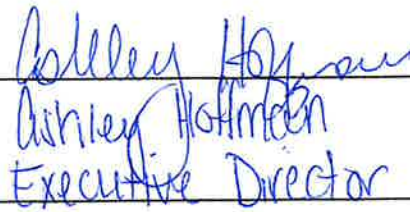 Ashley Hoffman
Ashley Hoffmeen
Executive Director